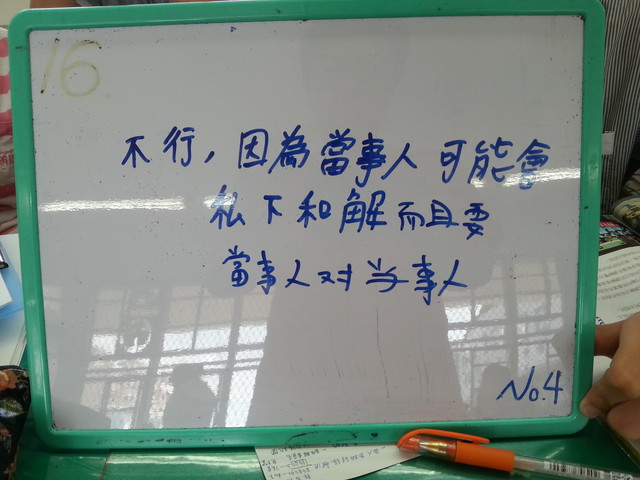 16
不行，因為當事人可能會
私下和解而且要
當事人对当事人
No.4